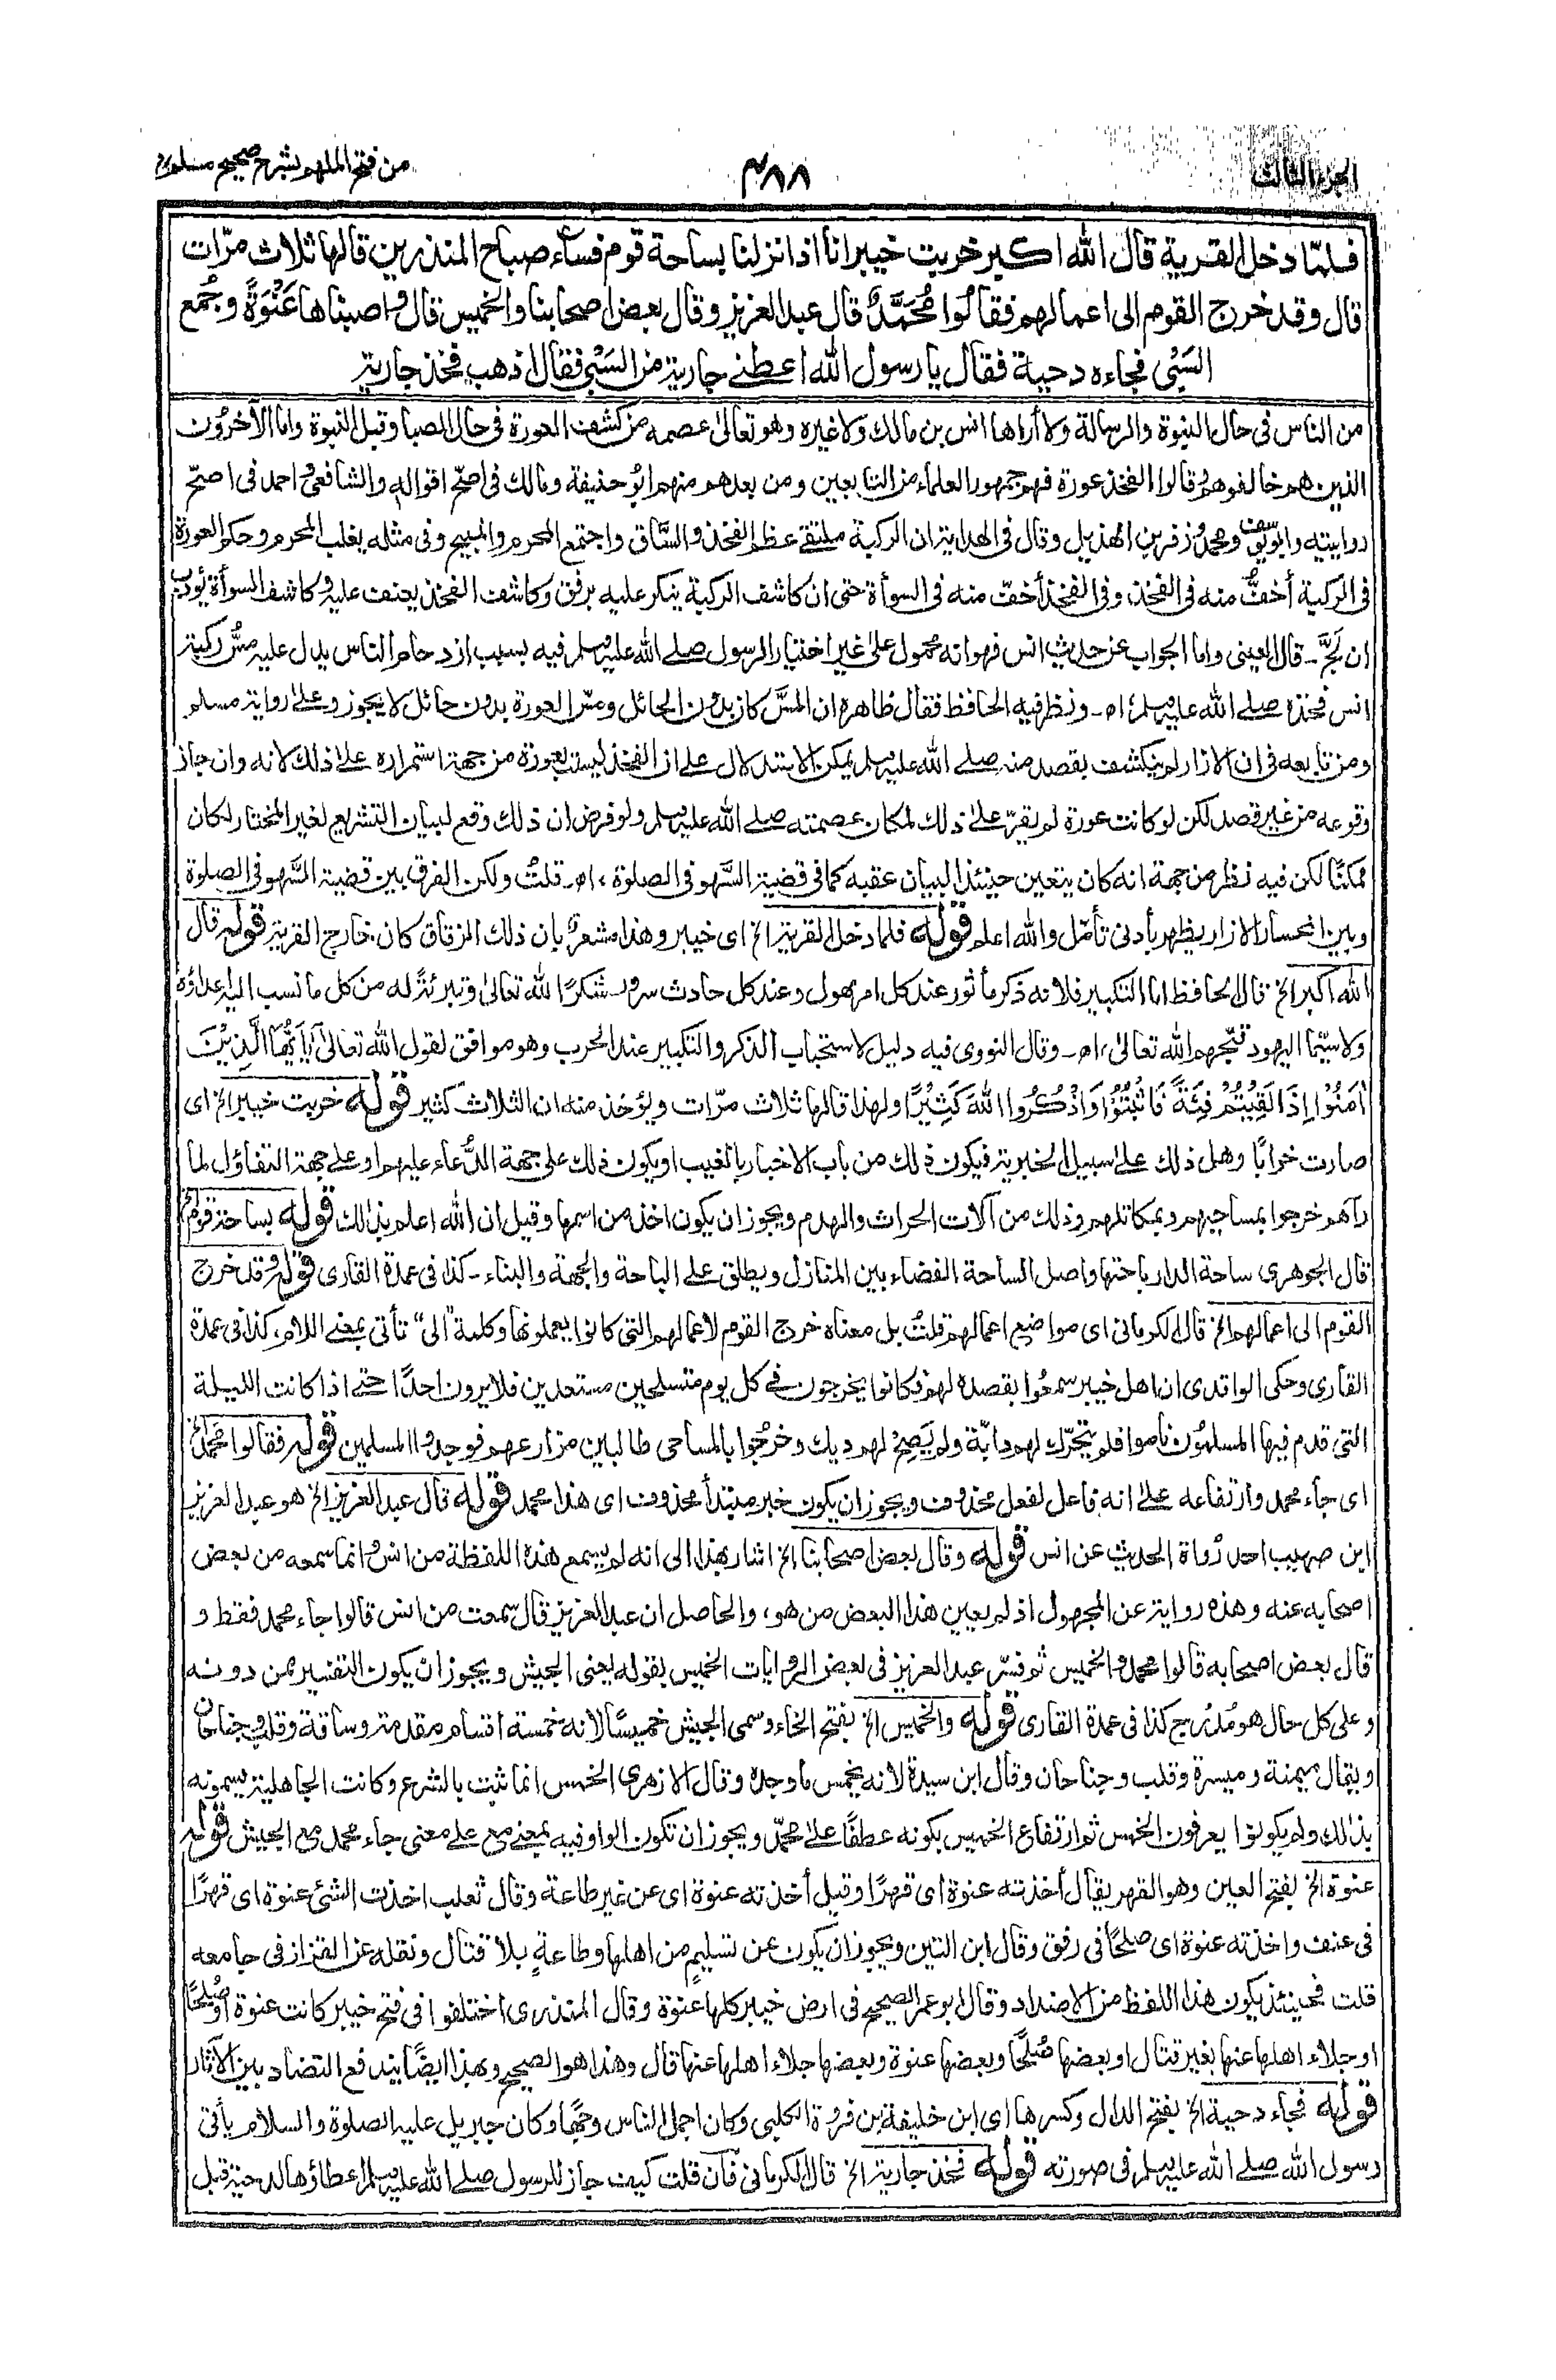 الجزء الثالث
٣٨٨
من فتح الملهم بشرح صحيح مسلم
فلمّا دخل القرية قال الله اكبر خربت خيبر انا اذا نزلنا بساحة قوم فساء صباح المنذرين قالها ثلاث مرّات
قال وقد خرج القوم الى اعمالهم فقالُوا مُحَمَّدٌ قال عبد العزيز وقال بعض اصحابنا والخميس قال واصبناها عَنْوَةً وجُمع
السَبْىُ فجاءه دحية فقال يا رسول الله اعطنے جارية من السَبْىِ فقال اذهب فخذ جارية
من الناس فى حال النبوة والرسالة ولا أراها انس بن مالك ولا غيره وهو تعالىٰ عصمه من كشف العورة فى حال الصبا وقبل النبوة واما الآخرُون
الذين هم خالفوهم وقالوا الفخذ عورة فهم جمهور العلماء من التابعين ومن بعدهم منهم ابُو حنيفة ومالك فى اصحّ اقواله والشافعى واحمد فى اصحّ
روايتيه وابويُوسف ومحمد وزفر بن الهذيل وقال فى الهداية ان الركبة ملتقے عظم الفخذ والسَّاق واجتمع المحرم والمبيح وفى مثله يغلب المحرم وحكم العورة
فى الركبة أخفُّ منه فى الفخذ، وفى الفخذ أخفّ منه فى السوأة حتى ان كاشف الركبة ينكر عليه برفق وكاشف الفخذ يعنف عليه وكاشف السوأة يُؤدب
ان لَجَّ ـ قال العينى واما الجواب عن حديث انس فهو انه محمول علىٰ غير اختيار الرسول صلے الله عليه وسلم فيه بسبب ازدحام الناس يدل عليه مسُّ ركبة
انس فخذه صلے الله عليه وسلم، اھ ـ ونظر فيه الحافظ فقال ظاهره ان المسَّ كان بدُون الحائل ومسّ العورة بدون حائل لا يجوز وعلىٰ رواية مسلم
ومن تابعه فى ان الازار لم ينكشف بقصد منه صلے الله عليه وسلم يمكن الاستدلال علے ان الفخذ ليست بعورة من جهة استمراره علىٰ ذلك لانه وان جاز
وقوعه من غير قصد لكن لو كانت عورة لم يقرّ علىٰ ذلك لمكان عصمته صلے الله عليه وسلم ولو فرض ان ذلك وقع لبيان التشريع لغير المختار لكان
ممكنًا لكن فيه نظر من جهة انه كان يتعين حينئذ البيان عقبه كما فى قضية السَّهو فى الصلوة، اھ ـ قلتُ ولكن الفرق بين قضية السَّهو فى الصلوة
وبين انحسار الازار يظهر بأدنى تأمّل والله اعلم قوله فلما دخل القرية الخ اى خيبر وهذا مشعرٌ بان ذلك الزقاق كان خارج القرية قوله قال
الله اكبر الخ قال الحافظ اما التكبير فلانه ذكر مأثور عند كل امر مهول وعند كل حادث سرور شكرًا لله تعالىٰ وتبرئةً له من كل ما نسب اليه اعداؤه
ولا سيّما اليهود قبّحهم الله تعالىٰ، اھ ـ وقال النووى فيه دليل لاستحباب الذكر والتكبير عند الحرب وهو موافق لقول الله تعالىٰ يٰٓاَيُّهَا الَّذِيْنَ
اٰمَنُوْا اِذَا لَقِيْتُمْ فِئَةً فَاثْبُتُوْا وَاذْكُرُوا اللهَ كَثِيْرًا ولهذا قالها ثلاث مرّات ويؤخذ منه ان الثلاث كثير قوله خربت خيبر الخ اى
صارت خرابًا وهل ذلك علے سبيل الخبرية فيكون ذلك من باب الاخبار بالغيب او يكون ذلك على جهة الدُّعاء عليهم او علے جهة التفاؤل لما
رآهم خرجوا بمساحيهم وبمكاتلهم وذلك من آلات الحراث والهدم ويجوز ان يكون اخذ من اسمها وقيل ان الله اعلم بذالك قوله بساحة قوم الخ
قال الجوهرى ساحة الدار باحتها واصل الساحة الفضاء بين المنازل ويطلق علے الباحة والجهة والبناء ـ كذا فى عمدة القارى قوله وقد خرج
القوم الى اعمالهم الخ قال الكرمانى اى مواضع اعمالهم قلتُ بل معناه خرج القوم لاعمالهم التى كانوا يعملونها وكلمة "الى" تأتى بمعنے اللام، كذا فى عمدة
القارى وحكى الواقدى ان اهل خيبر سمعُوا بقصده لهم فكانوا يخرجون فے كل يوم متسلحين مستعدين فلا يرون احدًا حتے اذا كانت الليلة
التى قدم فيها المسلمُون ناموا فلم تتحرّك لهم دابّة ولم يَصِحْ لهم ديك وخرجُوا بالمساحى طالبين مزارعهم فوجدوا المسلمين قوله فقالوا محمد الخ
اى جاء محمد وارتفاعه علےٰ انه فاعل لفعل محذوف ويجوز ان يكون خبر مبتدأ محذوف اى هذا محمد قوله قال عبد العزيز الخ هو عبد العزيز
ابن صهيب احد رُواة الحديث عن انس قوله وقال بعض اصحابنا الخ اشار بهذا الى انه لم يسمع هذه اللفظة من انس وانما سمعه من بعض
اصحابه عنه وهذه رواية عن المجهول اذ لم يعين هذا البعض من هو، والحاصل ان عبد العزيز قال سمعت من انس قالوا جاء محمد فقط و
قال بعض اصحابه قالوا محمد والخميس ثم فسّر عبد العزيز فى بعض الروايات الخميس بقوله يعنى الجيش ويجوز ان يكون التفسير ممن دونه
وعلى كل حال هو مُدْرج كذا فى عمدة القارى قوله والخميس الخ بفتح الخاء وسمى الجيش خميسًا لانه خمسة اقسام مقدمة وساقة وقلب وجناحان
ويقال ميمنة وميسرة وقلب وجناحان وقال ابن سيدة لانه يخمس ما وجده وقال الازهرى الخمس انما ثبت بالشرع وكانت الجاهلية يسمونه
بذالك ولم يكونوا يعرفون الخمس ثم ارتفاع الخميس بكونه عطفًا علےٰ محمّد ويجوز ان تكون الواو فيه بمعنے مع علے معنى جاء محمد مع الجيش قوله
عنوة الخ بفتح العين وهو القهر يقال أخذته عنوة اى قهرًا وقيل أخذته عنوة اى عن غير طاعة وقال ثعلب اخذت الشئ عنوة اى قهرًا
فى عنف واخذته عنوة اى صلحًا فى رفق وقال ابن التين ويجوز ان يكون عن تسليمٍ من اهلها وطاعةٍ بلا قتال ونقله عن القزاز فى جامعه
قلت فحينئذ يكون هذا اللفظ من الاضداد وقال ابو عمر الصحيح فى ارض خيبر كلها عنوة وقال المنذرى اختلفوا فى فتح خيبر كانت عنوة أو صُلحًا
او جلاء اهلها عنها بغير قتال او بعضها صُلحًا وبعضها عنوة وبعضها جلاء اهلها عنها قال وهذا هو الصحيح وبهذا ايضًا يندفع التضاد بين الآثار
قوله فجاء دحية الخ بفتح الدال وكسرها اى ابن خليفة بن فروة الكلبى وكان اجمل الناس وجهًا وكان جبريل عليه الصلوة والسلام يأتى
رسول الله صلے الله عليه وسلم فى صورته قوله فخذ جارية الخ قال الكرمانى فان قلت كيف جاز للرسول صلے الله عليه وسلم اعطاؤها لدحية قبل